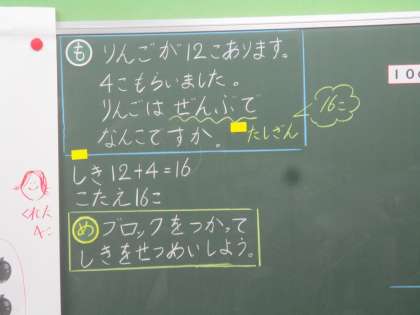 も りんごが12こあります。
4こもらいました。
りんごは ぜんぶで
なんこですか。
たしざん
16こ
しき 12+4=16
こたえ 16こ
め ブロックをつかって
しきをせつめいしよう。
くれた
4こ